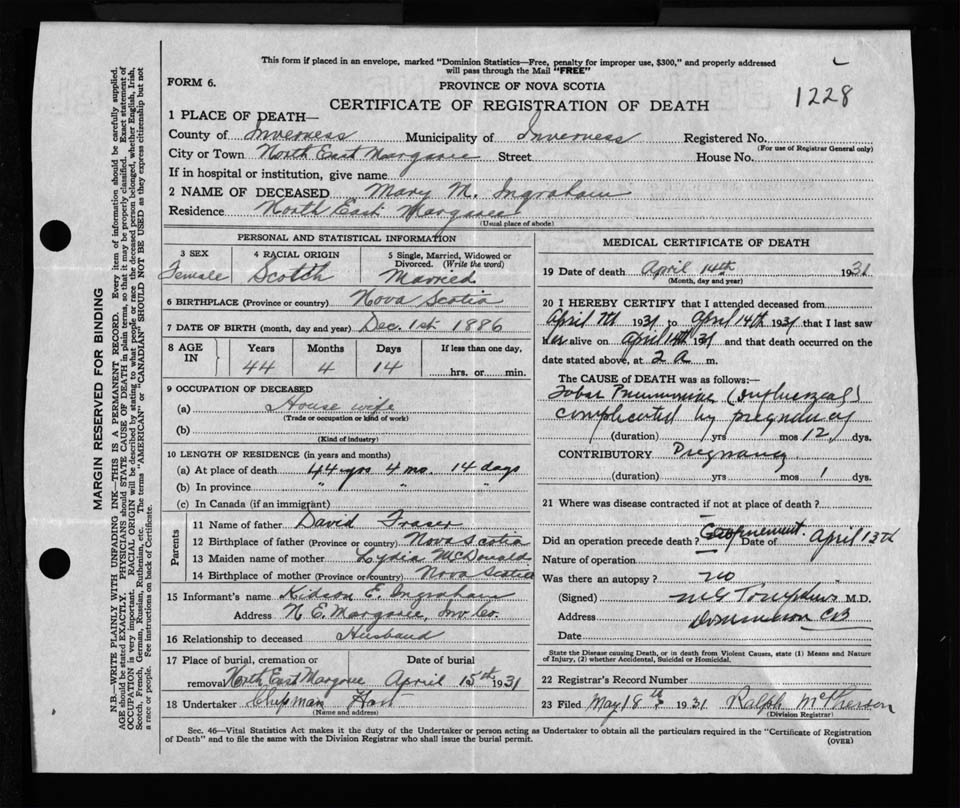 This form if placed in an envelope, marked "Dominion Statistics—Free, penalty for improper use, $300," and properly addressed
will pass through the Mail "FREE"
FORM 6.
PROVINCE OF NOVA SCOTIA
CERTIFICATE OF REGISTRATION OF DEATH
1228
1 PLACE OF DEATH—
County of Inverness Municipality of Inverness Registered No.
(For use of Registrar General only)
City or Town North East Margaree Street House No.
If in hospital or institution, give name
2 NAME OF DECEASED Mary M. Ingraham
Residence North East Margaree
(Usual place of abode)
PERSONAL AND STATISTICAL INFORMATION
3 SEX 4 RACIAL ORIGIN 5 Single, Married, Widowed or
Divorced. (Write the word)
Female Scotch Married
6 BIRTHPLACE (Province or country) Nova Scotia
7 DATE OF BIRTH (month, day and year) Dec. 1st 1886
8 AGE IN Years Months Days If less than one day,
44 4 14 hrs. or min.
9 OCCUPATION OF DECEASED
(a) House wife
(Trade or occupation or kind of work)
(b)
(Kind of industry)
10 LENGTH OF RESIDENCE (in years and months)
(a) At place of death 44 yrs 4 mo. 14 days
(b) In province " " "
(c) In Canada (if an immigrant)
Parents
11 Name of father David Fraser
12 Birthplace of father (Province or country) Nova Scotia
13 Maiden name of mother Lydia McDonald
14 Birthplace of mother (Province or country) Nova Scotia
15 Informant's name E. Ingraham
Address N E. Margaree, Inv. Co.
16 Relationship to deceased Husband
17 Place of burial, cremation or Date of burial
removal North East Margaree April 15th 1931
18 Undertaker Chipman Hart
(Name and address)
MEDICAL CERTIFICATE OF DEATH
19 Date of death April 14th 1931
(Month, day and year)
20 I HEREBY CERTIFY that I attended deceased from
April 7th 1931 to April 14th 1931 that I last saw
her alive on April 14th 1931 and that death occurred on the
date stated above, at 2 a m.
The CAUSE OF DEATH was as follows:—
Lobar Pneumonia (Influenzal)
complicated by pregnancy
(duration) yrs mos 12 dys.
CONTRIBUTORY Pregnancy
(duration) yrs mos 1 dys.
21 Where was disease contracted if not at place of death?
Did an operation precede death? Confinement. Date of April 13th
Nature of operation
Was there an autopsy? no
(Signed) M G Tompkins M.D.
Address Dominion CB
Date
State the Disease causing Death, or in death from Violent Causes, state (1) Means and Nature
of Injury, (2) whether Accidental, Suicidal or Homicidal.
22 Registrar's Record Number
23 Filed May 18th 1931 Ralph McPherson
(Division Registrar)
Sec. 46—Vital Statistics Act makes it the duty of the Undertaker or person acting as Undertaker to obtain all the particulars required in the "Certificate of Registration
of Death" and to file the same with the Division Registrar who shall issue the burial permit.
(OVER)
MARGIN RESERVED FOR BINDING
N.B.—WRITE PLAINLY WITH UNFADING INK—THIS IS A PERMANENT RECORD. Every item of information should be carefully supplied.
AGE should be stated EXACTLY. PHYSICIANS should STATE CAUSE OF DEATH in plain terms, so that it may be properly classified. Exact statement of
OCCUPATION is very important. RACIAL ORIGIN will be described by stating to what people or race the deceased person belonged, whether English, Irish,
Scotch, French, German, Russian, Ruthenian, etc. The terms "AMERICAN" or "CANADIAN" SHOULD NOT BE USED as they express citizenship but not
a race or people. Fee instructions on back of Certificate.